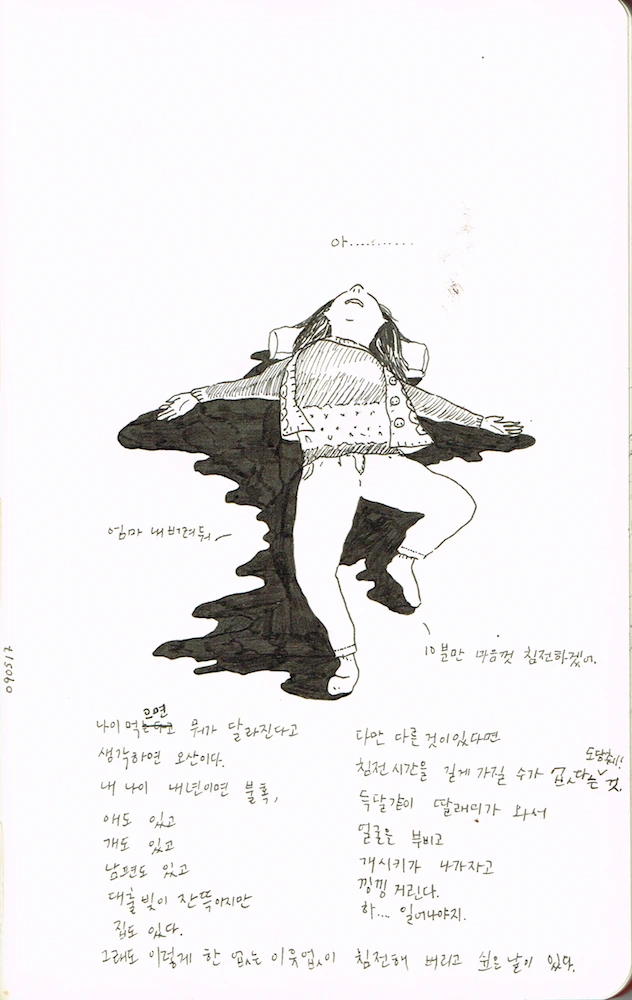 아..........
엄마 내버려둬~
10분만 마음껏 침전하겠어.
090517
나이 먹으면 뭐가 달라진다고
생각하면 오산이다.
내 나이 내년이면 불혹,
애도 있고
개도 있고
남편도 있고
대출 빚이 잔뜩이지만
집도 있다.
다만 다른 것이 있다면
침전 시간을 길게 가질 수가 도당췌! 없다는 것.
득달같이 딸래미가 와서
얼굴을 부비고
개시키가 나가자고
낑낑 거린다.
하... 일어나야지.
그래도 이렇게 한 없는 이유없이 침전해 버리고 싶은 날이 있다.